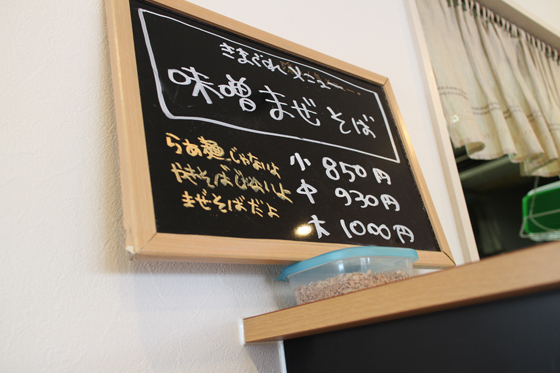 きまぐれメニュー
味噌まぜそば
らぁ麺じゃないよ
やきそばじゃないよ
まぜそばだよ
小 850円
中 930円
大 1000円